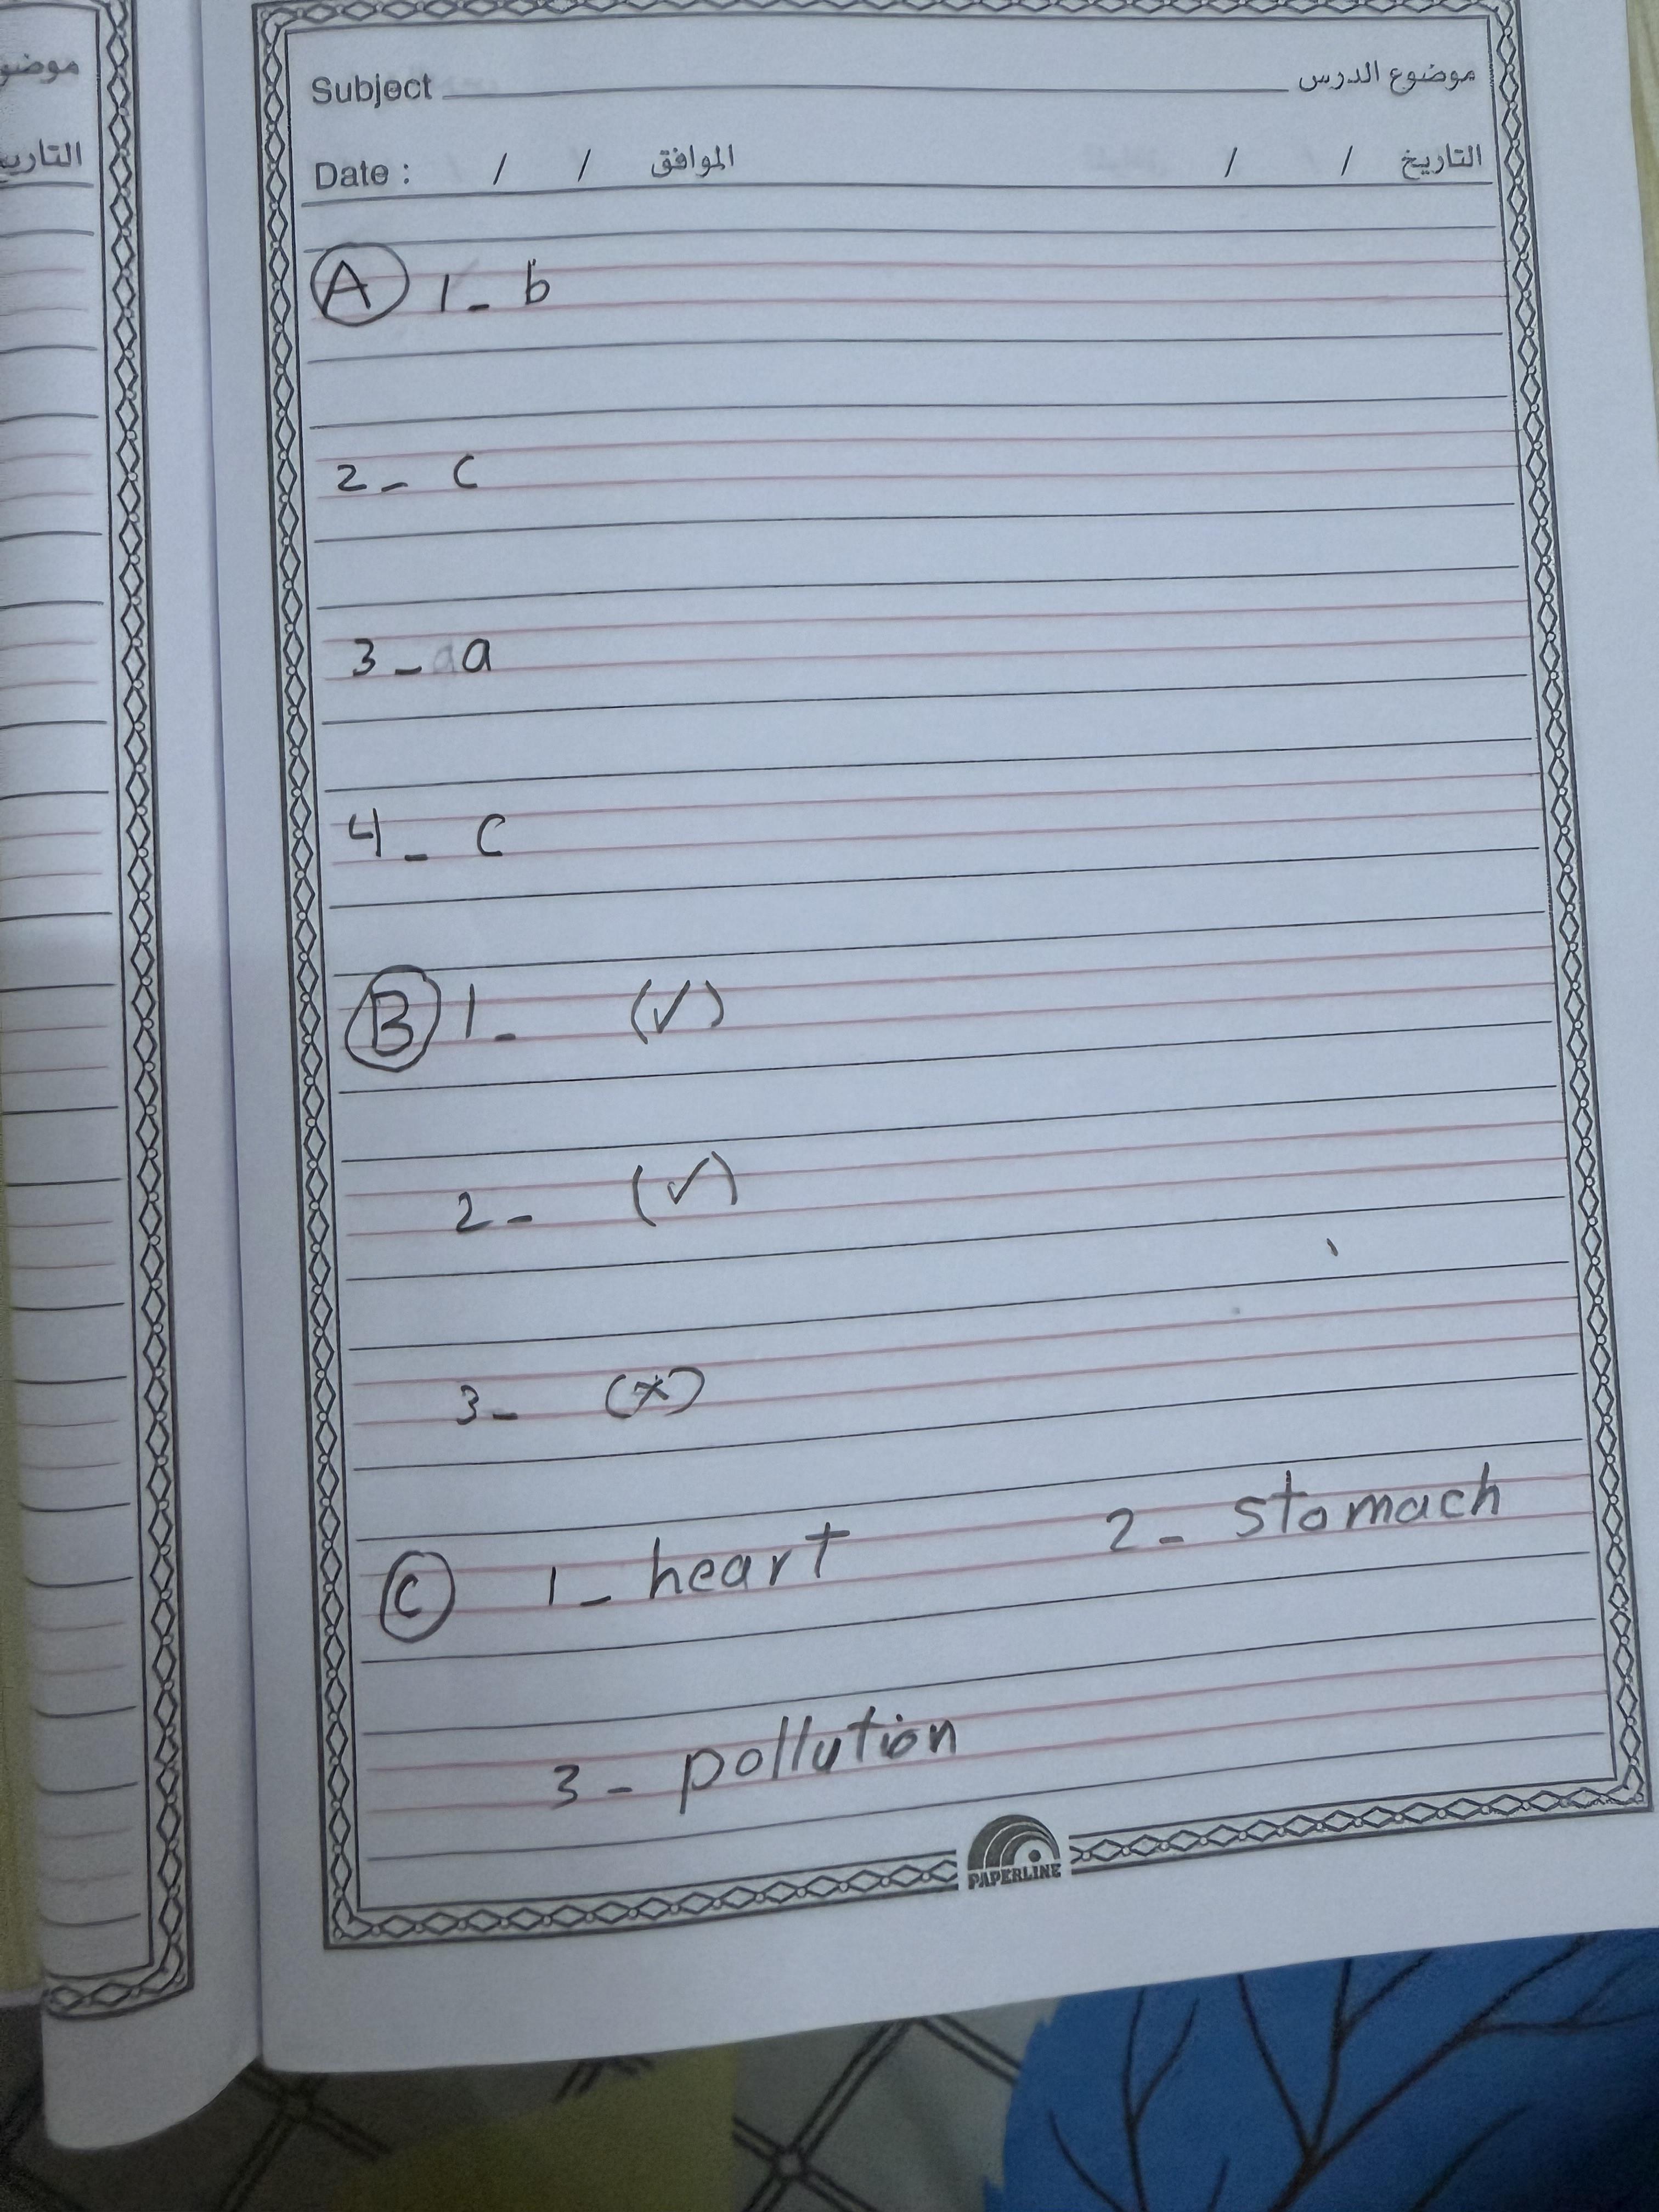 موضو
التاريخ
Subject موضوع الدرس
Date : / / الموافق / / التاريخ
A 1- b
2- c
3- a
4- c
B 1- (✓)
2- (✓)
3- (✗)
C 1- heart 2- stomach
3- pollution
PAPERLINE